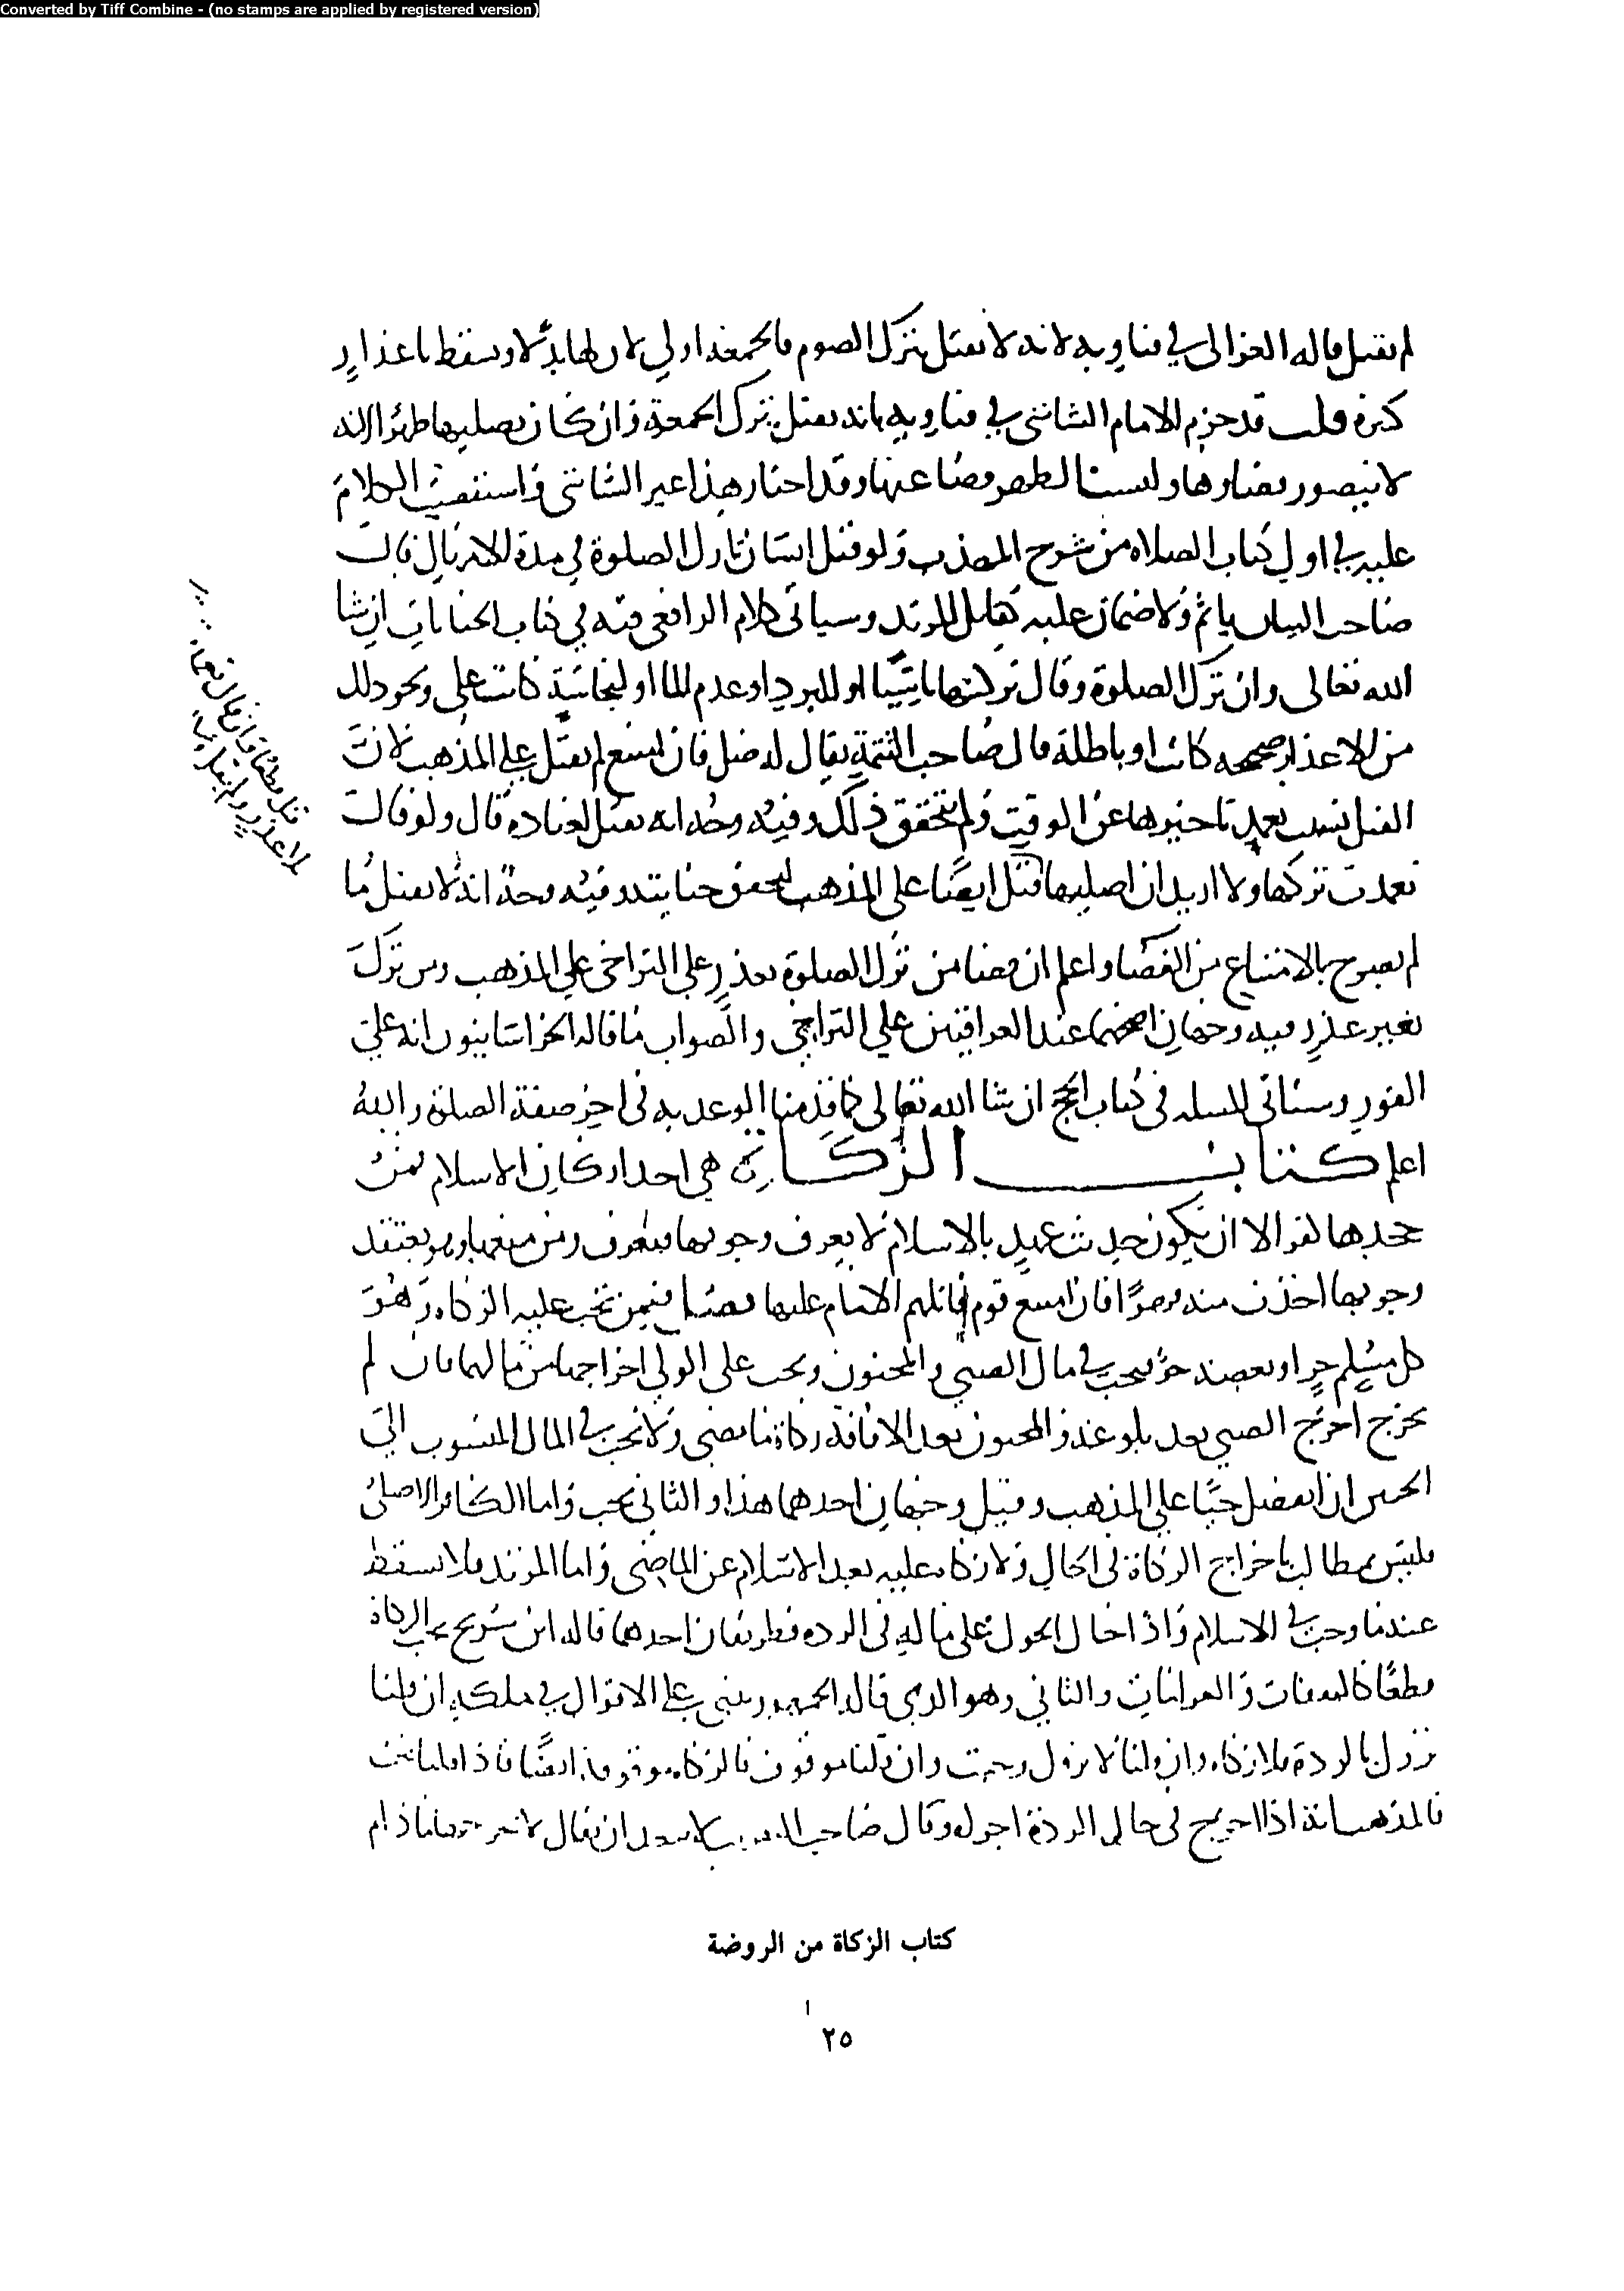 Converted by Tiff Combine - (no stamps are applied by registered version)
لم يقتل قاله الغزالى في فتاويه لانه لا يقتل بترك الصوم فالجمعة اولي لان لها بدلا وتسقط باعذار
كثيرة قلت قد جزم الامام الشاشي في فتاويه بانه يقتل بترك الجمعة وان كان يصليها ظهرا لانه
لا يتصور قضاوها وليست الظهر قضا عنها وقد اختار هذا غير الشاشي واستقصيت الكلام
عليه في اول كتاب الصلاه من شرح المهذب ولو قتل انسان تارك الصلوة في مدة الاستتابة قال
صاحب البيان ياثم ولا ضمان عليه كقاتل المرتد وسياتي كلام الرافعي فيه في كتاب الجنايات ان شا
الله تعالى وان ترك الصلوة وقال تركتها ناسيا او للبرد او عدم الما او لنجاسة كانت علي ونحو ذلك
من الاعذار صحيحه كانت او باطلة قال صاحب التتمة يقال له صل فان امتنع لم يقتل علي المذهب لان
القتل بسبب تعمد تاخيرها عن الوقت ولم يتحقق ذلك وفيه وجه انه يقتل لعناده قال ولو قال
تعمدت تركها ولا اريد ان اصليها قتل ايضا على المذهب لتحقق جنايته وفيه وجه انه لا يقتل ما
لم يصرح بالامتناع من القضا واعلم ان قضا من ترك الصلوة بعذر على التراخي علي المذهب ومن ترك
بغير عذر فيه وجهان اصحهما عند العراقيين علي التراخي والصواب ما قاله الخراسانيون انه علي
الفور وستاتي المسلة في كتاب الحج ان شا الله تعالى كما قدمنا الوعد به في اخر صفة الصلوة والله
اعلم كتاب الزكاة هي احد اركان الاسلام فمن
جحدها كفر الا ان يكون حديث عهد بالاسلام لا يعرف وجوبها فيعرف ومن منعها وهو يعتقد
وجوبها اخذت منه قهرا فان امتنع قوم قاتلهم الامام عليها فصل فيمن تجب عليه الزكاه وهو
كل مسلم حر او بعضه حر فتجب في مال الصبي والمجنون ويجب على الولي اخراجها من مالهما فان لم
يخرج اخرج الصبي بعد بلوغه والمجنون بعد الافاقة زكاة ما مضى ولا تجب في المال المنسوب الي
الجنين ان انفصل حيا علي المذهب وقيل وجهان احدهما هذا والثاني تجب واما الكافر الاصلي
فليس بمطالب باخراج الزكاة في الحال ولا زكاه عليه بعد الاسلام عن الماضي واما المرتد فلا يسقط
عنه ما وجب في الاسلام واذا حال الحول على ماله في الرده فطريقان احدهما قاله ابن سريج تجب الزكاة
قطعا كالنفقات والغرامات والثاني وهو الذي قاله الجمهور يبنى علي الاقوال في ملكه ان قلنا
يزول بالردة فلا زكاه وان قلنا لا يزول وجبت وان قلنا موقوف فالزكاه موقوفة ايضا فاذا قلنا تجب
فالمذهب انه اذا اخرج في حال الردة اجزاه وقال صاحب التقريب لا يبعد ان يقال لا يخرجها ما دام
كتاب الزكاة من الروضة
٢٥